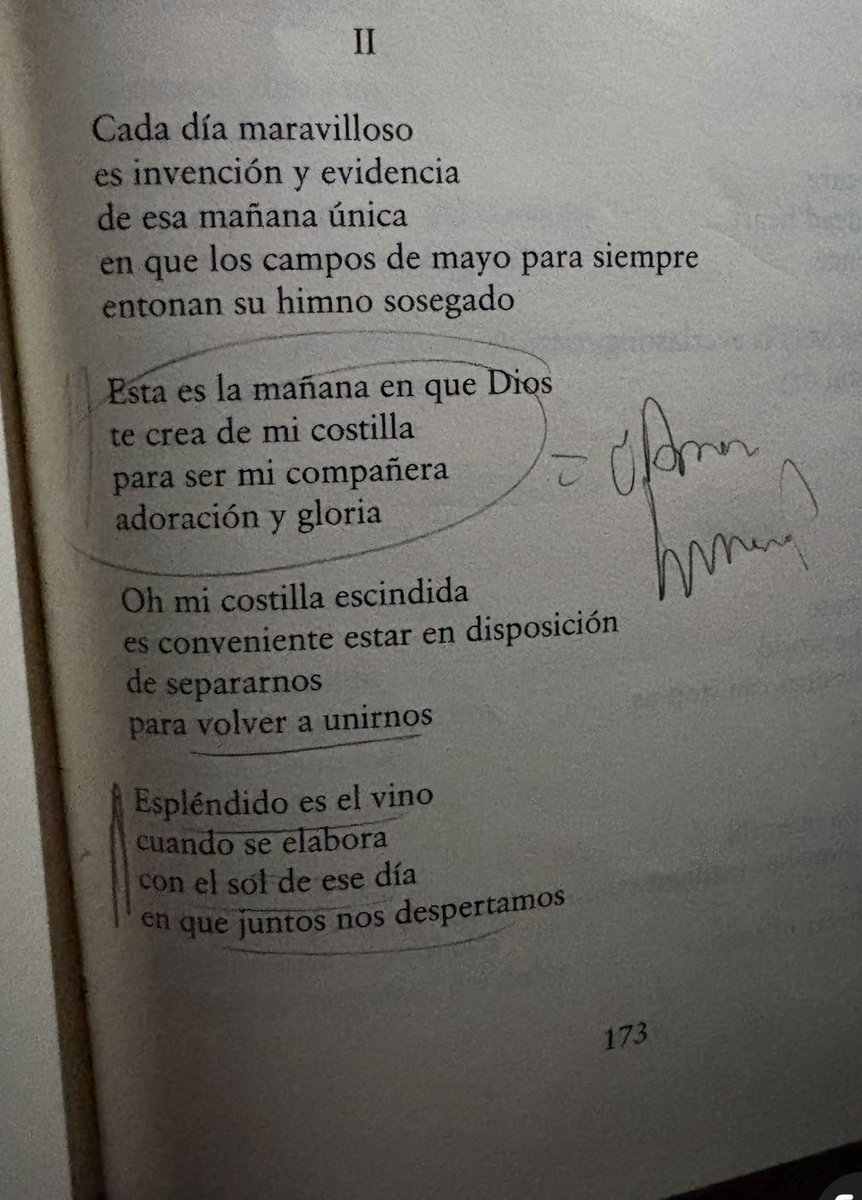 II
Cada día maravilloso
es invención y evidencia
de esa mañana única
en que los campos de mayo para siempre
entonan su himno sosegado
Esta es la mañana en que Dios
te crea de mi costilla
para ser mi compañera
adoración y gloria
Amor
Oh mi costilla escindida
es conveniente estar en disposición
de separarnos
para volver a unirnos
Espléndido es el vino
cuando se elabora
con el sol de ese día
en que juntos nos despertamos
173